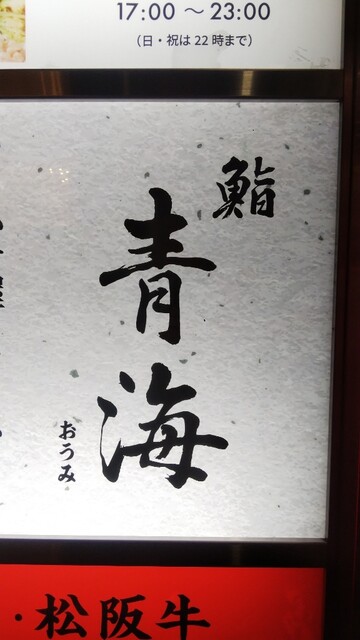 17:00 ～ 23:00
（日・祝は 22 時まで）
鮨
青海
おうみ
・松阪牛